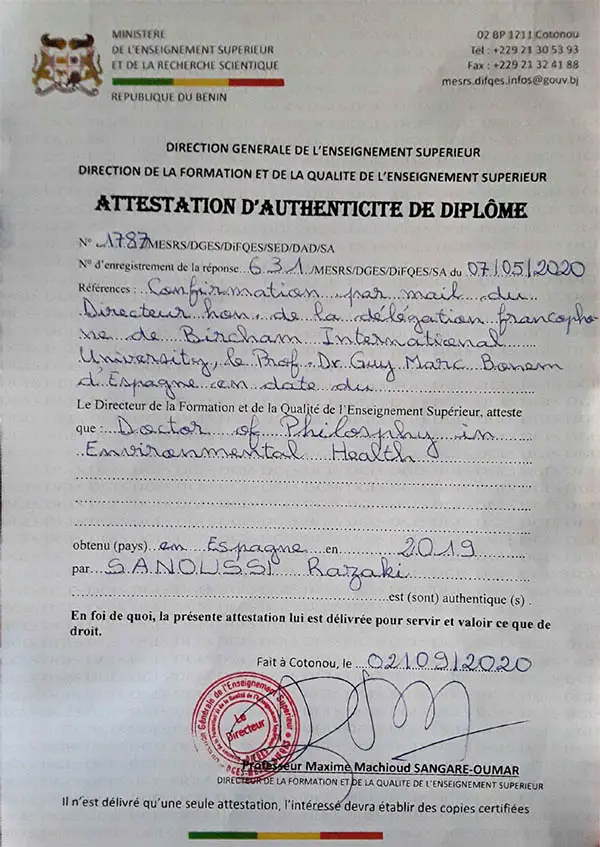 MINISTERE
DE L'ENSEIGNEMENT SUPERIEUR
ET DE LA RECHERCHE SCIENTIFIQUE
REPUBLIQUE DU BENIN
02 BP 1211 Cotonou
Tél : +229 21 30 53 93
Fax : +229 21 32 41 88
mesrs.difqes.infos@gouv.bj
DIRECTION GENERALE DE L'ENSEIGNEMENT SUPERIEUR
DIRECTION DE LA FORMATION ET DE LA QUALITE DE L'ENSEIGNEMENT SUPERIEUR
ATTESTATION D'AUTHENTICITE DE DIPLÔME
N° 1787/MESRS/DGES/DiFQES/SED/DAD/SA
N° d'enregistrement de la réponse 631/MESRS/DGES/DiFQES/SA du 07/05/2020
Références : Confirmation par mail du
Directeur hon. de la délégation francopho-
ne de Bircham International
University, le Prof. Dr. Guy Marc Bonem
d'Espagne en date du
Le Directeur de la Formation et de la Qualité de l'Enseignement Supérieur, atteste
que : Doctor of Philosphy in
Environmental Health
obtenu (pays) en Espagne en 2019
par SANOUSSI Razaki
est (sont) authentique (s) .
En foi de quoi, la présente attestation lui est délivrée pour servir et valoir ce que de
droit.
Fait à Cotonou, le 02/09/2020
Le
Directeur
Professeur Maxime Machioud SANGARE-OUMAR
DIRECTEUR DE LA FORMATION ET DE LA QUALITE DE L'ENSEIGNEMENT SUPERIEUR
Il n'est délivré qu'une seule attestation, l'intéressé devra établir des copies certifiées